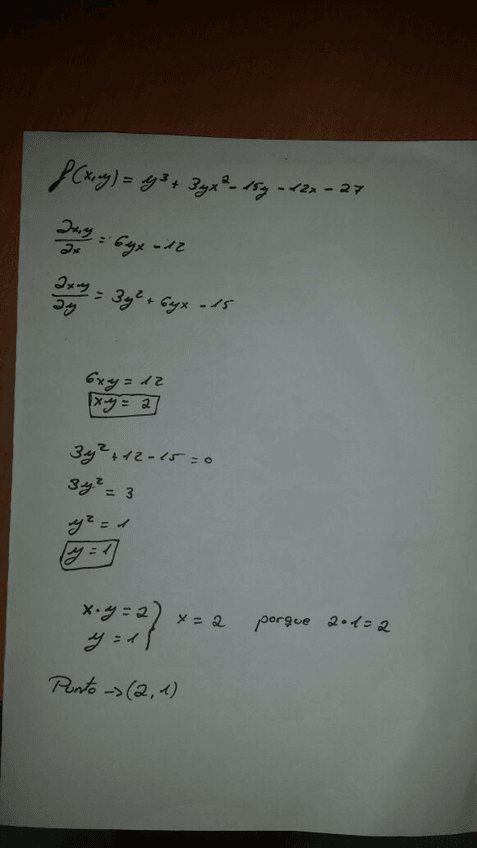 f(x,y) = y³ + 3yx² - 15y - 12x - 27
∂x,y/∂x = 6yx - 12
∂x,y/∂y = 3y² + 6yx - 15
6xy = 12
xy = 2
3y² + 12 - 15 = 0
3y² = 3
y² = 1
y = 1
x·y = 2 } x = 2 porque 2·1 = 2
y = 1
Punto → (2, 1)